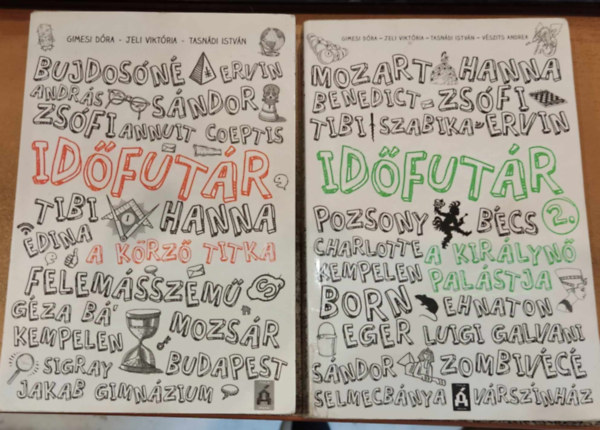 GIMESI DÓRA - JELI VIKTÓRIA - TASNÁDI ISTVÁN
BUJDOSÓNÉ ERVIN
ANDRÁS SÁNDOR
ZSÓFI ANNUIT COEPTIS
IDŐFUTÁR
TIBI HANNA
EDINA A KÖRZŐ TITKA
FELEMÁSSZEMŰ
GÉZA BÁ'
KEMPELEN MOZSÁR
SIGRAY BUDAPEST
JAKAB GIMNÁZIUM
GIMESI DÓRA - JELI VIKTÓRIA - TASNÁDI ISTVÁN - VÉSZITS ANDREA
MOZART HANNA
BENEDICT ZSÓFI
TIBI SZABIKA ERVIN
IDŐFUTÁR
POZSONY BÉCS 2.
CHARLOTTE A KIRÁLYNŐ
KEMPELEN PALÁSTJA
BORN EHNATON
EGER LUIGI GALVANI
SÁNDOR ZOMBIVÉCÉ
SELMECBÁNYA VÁRSZÍNHÁZ